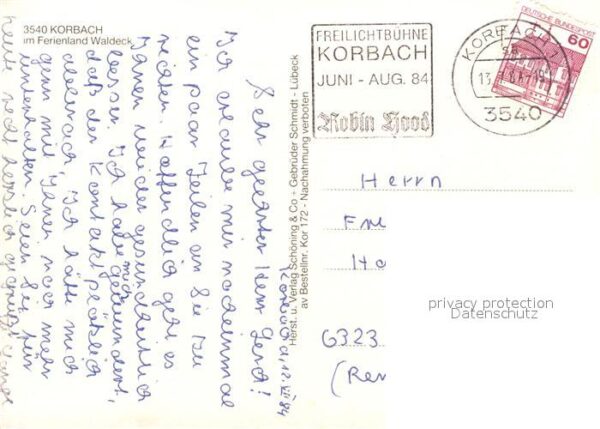 3540 KORBACH
im Ferienland Waldeck
FREILICHTBÜHNE
KORBACH
JUNI - AUG. 84
Robin Hood
KORBACH
3540
DEUTSCHE BUNDESPOST
60
Herst. u. Verlag Schöning & Co · Gebrüder Schmidt - Lübeck
av Bestellnr. Kor 172 - Nachahmung verboten
Korbach, 12. VII 84
Sehr geehrter Herr
Ich erlaube mir nocheinmal
ein paar Zeilen an Sie zu
richten. Hoffentlich geht es
Ihnen wieder gesundheitlich
besser. Ich habe mich gewundert,
daß der Kontakt plötzlich
abbrach, Ich hätte mich
gern mit Ihnen noch mehr
unterhalten. Seien Sie für
heute recht herzlich gegrüßt
Herrn
6323
privacy protection
Datenschutz